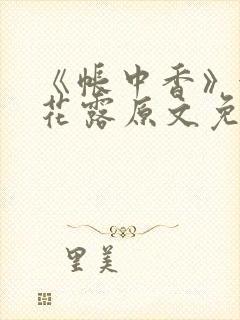 《帐中香》
花露原文免
里美